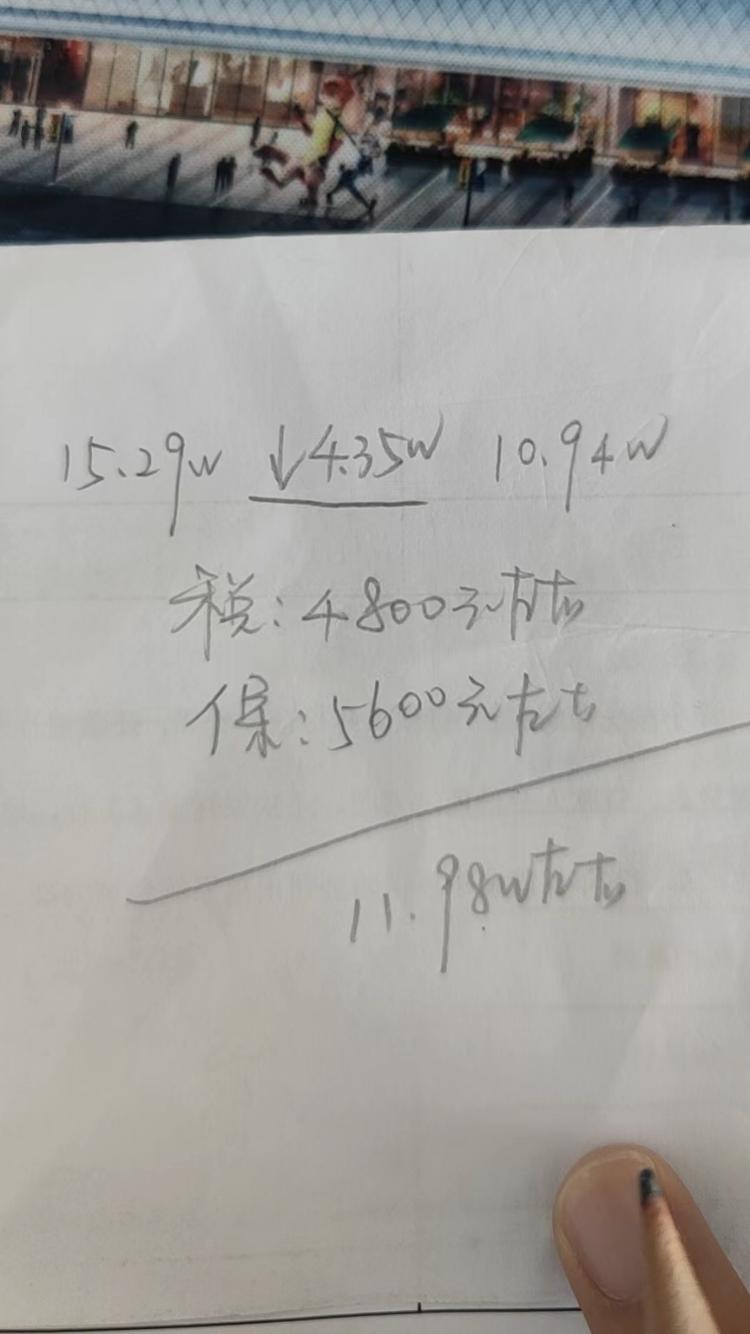 15.29w ↓4.35w 10.94w
税:4800元左右
保:5600元左右
11.98w左右